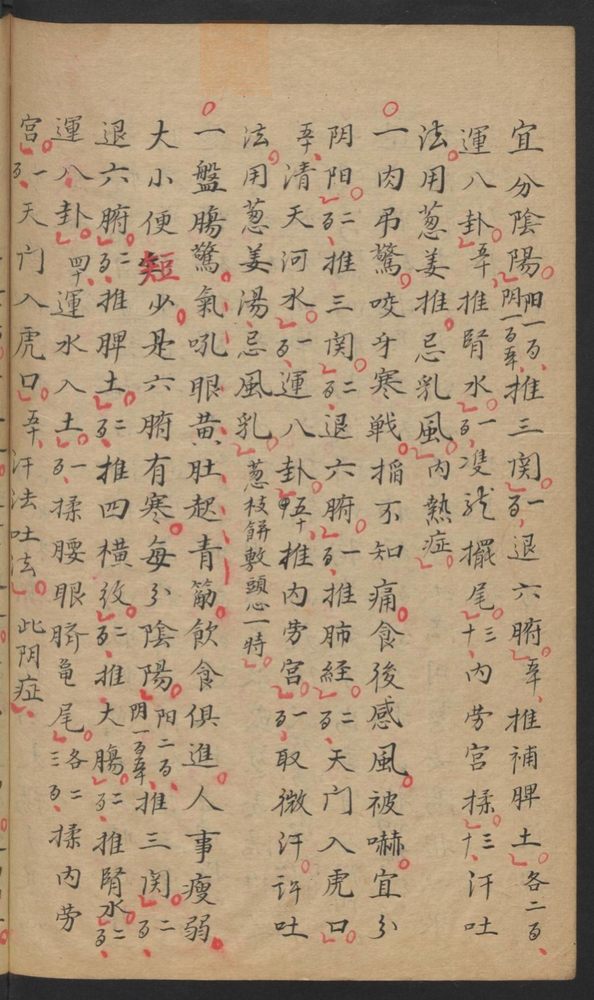 宜分陰陽阳一百阴一百五十推三関一百退六腑五十推補脾土各二百
運八卦五十推腎水一百双龙擺尾三十内劳宮揉三十汗吐
法用葱姜推忌乳風内熱症
一肉吊驚咬牙寒戦掐不知痛食後感風被嚇宜分
阴阳二百推三関二百退六腑一百推肺經二百天门入虎口
五十清天河水一百運八卦五十推内劳宮一百取微汗許吐
法用葱姜湯忌風乳葱枝餅敷頭心一時
一盤腸驚氣吼眼黄肚起青筋飲食俱進人事瘦弱
大小便短少是六腑有寒每分陰陽阳二百阴一百五十推三関二百
退六腑二百推脾土二百推四横紋二百推大腸二百推腎水二百
運八卦四十運水入土一百揉腰眼臍龟尾各二三百揉内劳
宮一百天门入虎口五十汗法吐法此阴症